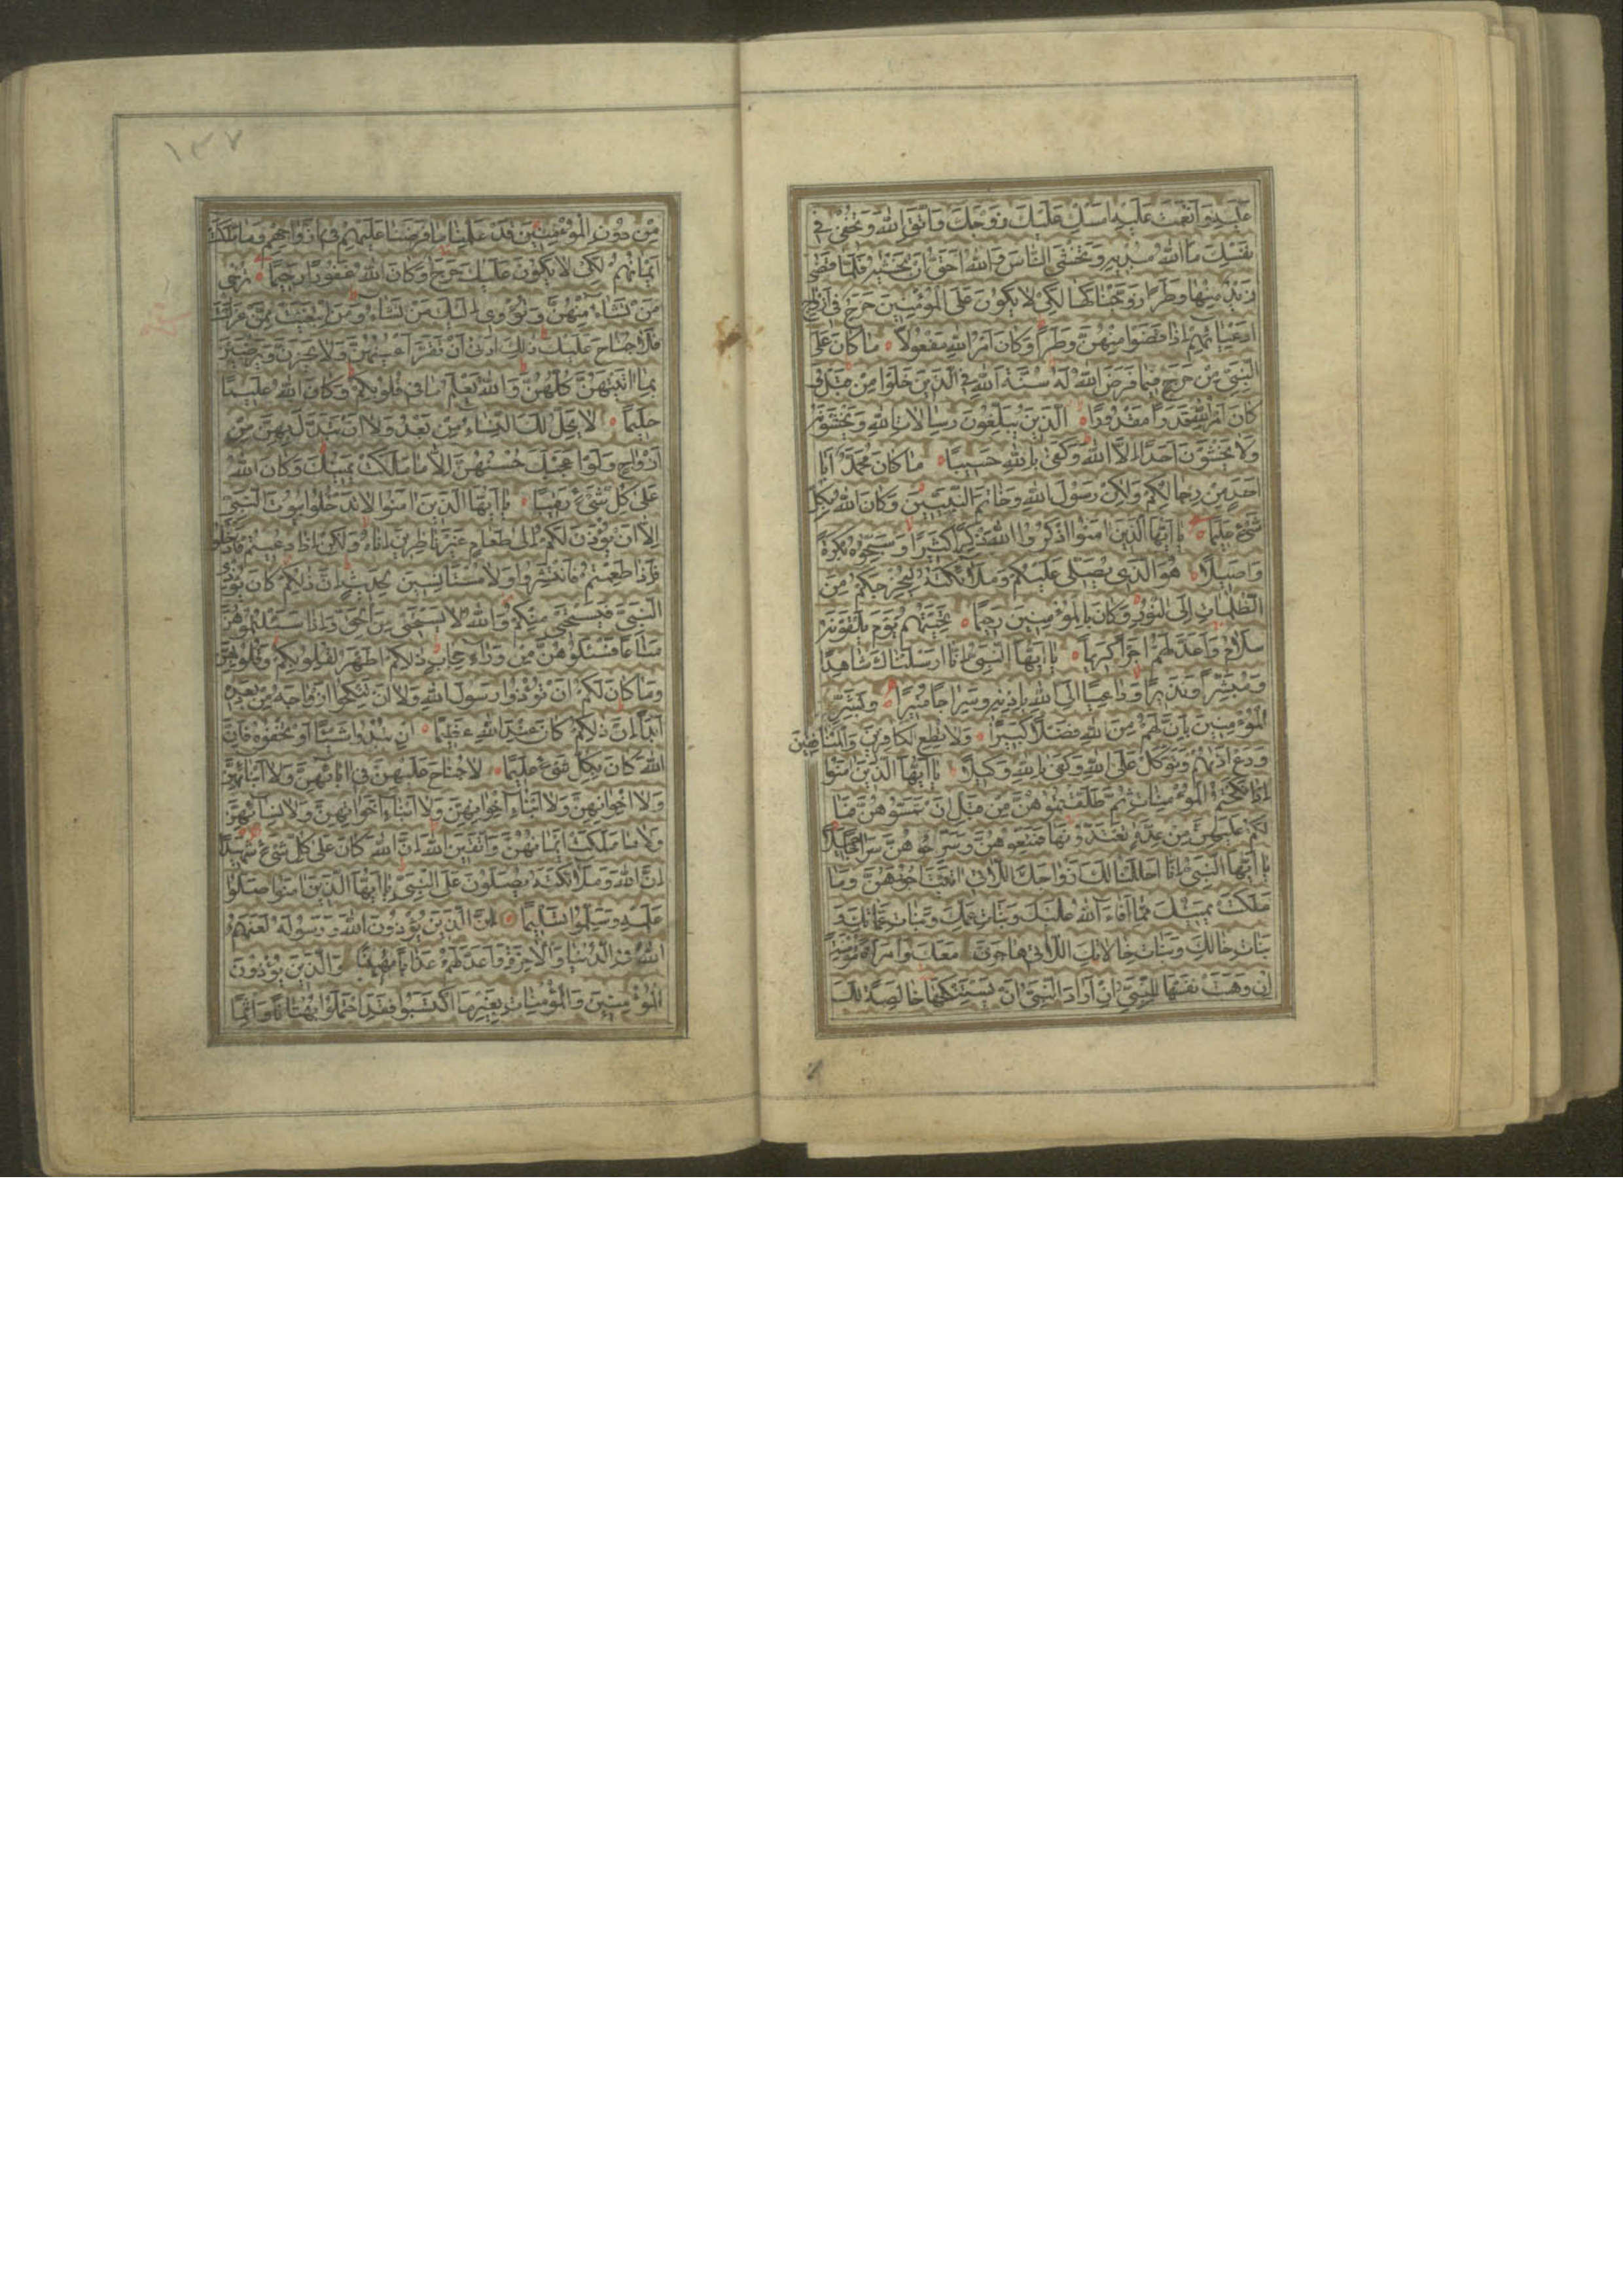 عَلَيْهِ وَأَنْعَمْتَ عَلَيْهِ أَمْسِكْ عَلَيْكَ زَوْجَكَ وَاتَّقِ اللّٰهَ وَتُخْفِي فِي
نَفْسِكَ مَا اللّٰهُ مُبْدِيهِ وَتَخْشَى النَّاسَ وَاللّٰهُ أَحَقُّ أَنْ تَخْشٰيهُ فَلَمَّا قَضٰى
زَيْدٌ مِنْهَا وَطَرًا زَوَّجْنَاكَهَا لِكَيْ لَا يَكُونَ عَلَى الْمُؤْمِنِينَ حَرَجٌ فِي أَزْوَاجِ
أَدْعِيَائِهِمْ إِذَا قَضَوْا مِنْهُنَّ وَطَرًا وَكَانَ أَمْرُ اللّٰهِ مَفْعُولًا مَا كَانَ عَلَى
النَّبِيِّ مِنْ حَرَجٍ فِيمَا فَرَضَ اللّٰهُ لَهُ سُنَّةَ اللّٰهِ فِي الَّذِينَ خَلَوْا مِنْ قَبْلُ وَ
كَانَ أَمْرُ اللّٰهِ قَدَرًا مَقْدُورًا الَّذِينَ يُبَلِّغُونَ رِسَالَاتِ اللّٰهِ وَيَخْشَوْنَهُ
وَلَا يَخْشَوْنَ أَحَدًا إِلَّا اللّٰهَ وَكَفَى بِاللّٰهِ حَسِيبًا مَا كَانَ مُحَمَّدٌ أَبَا
أَحَدٍ مِنْ رِجَالِكُمْ وَلٰكِنْ رَسُولَ اللّٰهِ وَخَاتَمَ النَّبِيِّينَ وَكَانَ اللّٰهُ بِكُلِّ
شَيْءٍ عَلِيمًا يَا أَيُّهَا الَّذِينَ آمَنُوا اذْكُرُوا اللّٰهَ ذِكْرًا كَثِيرًا وَسَبِّحُوهُ بُكْرَةً
وَأَصِيلًا هُوَ الَّذِي يُصَلِّي عَلَيْكُمْ وَمَلَائِكَتُهُ لِيُخْرِجَكُمْ مِنَ
الظُّلُمَاتِ إِلَى النُّورِ وَكَانَ بِالْمُؤْمِنِينَ رَحِيمًا تَحِيَّتُهُمْ يَوْمَ يَلْقَوْنَهُ
سَلَامٌ وَأَعَدَّ لَهُمْ أَجْرًا كَرِيمًا يَا أَيُّهَا النَّبِيُّ إِنَّا أَرْسَلْنَاكَ شَاهِدًا
وَمُبَشِّرًا وَنَذِيرًا وَدَاعِيًا إِلَى اللّٰهِ بِإِذْنِهِ وَسِرَاجًا مُنِيرًا وَبَشِّرِ
الْمُؤْمِنِينَ بِأَنَّ لَهُمْ مِنَ اللّٰهِ فَضْلًا كَبِيرًا وَلَا تُطِعِ الْكَافِرِينَ وَالْمُنَافِقِينَ
وَدَعْ أَذَاهُمْ وَتَوَكَّلْ عَلَى اللّٰهِ وَكَفَى بِاللّٰهِ وَكِيلًا يَا أَيُّهَا الَّذِينَ آمَنُوا
إِذَا نَكَحْتُمُ الْمُؤْمِنَاتِ ثُمَّ طَلَّقْتُمُوهُنَّ مِنْ قَبْلِ أَنْ تَمَسُّوهُنَّ فَمَا
لَكُمْ عَلَيْهِنَّ مِنْ عِدَّةٍ تَعْتَدُّونَهَا فَمَتِّعُوهُنَّ وَسَرِّحُوهُنَّ سَرَاحًا جَمِيلًا
يَا أَيُّهَا النَّبِيُّ إِنَّا أَحْلَلْنَا لَكَ أَزْوَاجَكَ اللَّاتِي آتَيْتَ أُجُورَهُنَّ وَمَا
مَلَكَتْ يَمِينُكَ مِمَّا أَفَاءَ اللّٰهُ عَلَيْكَ وَبَنَاتِ عَمِّكَ وَبَنَاتِ عَمَّاتِكَ وَ
بَنَاتِ خَالِكَ وَبَنَاتِ خَالَاتِكَ اللَّاتِي هَاجَرْنَ مَعَكَ وَامْرَأَةً مُؤْمِنَةً
إِنْ وَهَبَتْ نَفْسَهَا لِلنَّبِيِّ إِنْ أَرَادَ النَّبِيُّ أَنْ يَسْتَنْكِحَهَا خَالِصَةً لَكَ
١٣٧
مِنْ دُونِ الْمُؤْمِنِينَ قَدْ عَلِمْنَا مَا فَرَضْنَا عَلَيْهِمْ فِي أَزْوَاجِهِمْ وَمَا مَلَكَتْ
أَيْمَانُهُمْ لِكَيْ لَا يَكُونَ عَلَيْكَ حَرَجٌ وَكَانَ اللّٰهُ غَفُورًا رَحِيمًا تُرْجِي
مَنْ تَشَاءُ مِنْهُنَّ وَتُؤْوِي إِلَيْكَ مَنْ تَشَاءُ وَمَنِ ابْتَغَيْتَ مِمَّنْ عَزَلْتَ
فَلَا جُنَاحَ عَلَيْكَ ذٰلِكَ أَدْنَى أَنْ تَقَرَّ أَعْيُنُهُنَّ وَلَا يَحْزَنَّ وَيَرْضَيْنَ
بِمَا آتَيْتَهُنَّ كُلُّهُنَّ وَاللّٰهُ يَعْلَمُ مَا فِي قُلُوبِكُمْ وَكَانَ اللّٰهُ عَلِيمًا
حَلِيمًا لَا يَحِلُّ لَكَ النِّسَاءُ مِنْ بَعْدُ وَلَا أَنْ تَبَدَّلَ بِهِنَّ مِنْ
أَزْوَاجٍ وَلَوْ أَعْجَبَكَ حُسْنُهُنَّ إِلَّا مَا مَلَكَتْ يَمِينُكَ وَكَانَ اللّٰهُ
عَلَى كُلِّ شَيْءٍ رَقِيبًا يَا أَيُّهَا الَّذِينَ آمَنُوا لَا تَدْخُلُوا بُيُوتَ النَّبِيِّ
إِلَّا أَنْ يُؤْذَنَ لَكُمْ إِلَى طَعَامٍ غَيْرَ نَاظِرِينَ إِنَاهُ وَلٰكِنْ إِذَا دُعِيتُمْ فَادْخُلُوا
فَإِذَا طَعِمْتُمْ فَانْتَشِرُوا وَلَا مُسْتَأْنِسِينَ لِحَدِيثٍ إِنَّ ذٰلِكُمْ كَانَ يُؤْذِي
النَّبِيَّ فَيَسْتَحْيِي مِنْكُمْ وَاللّٰهُ لَا يَسْتَحْيِي مِنَ الْحَقِّ وَإِذَا سَأَلْتُمُوهُنَّ
مَتَاعًا فَسْئَلُوهُنَّ مِنْ وَرَاءِ حِجَابٍ ذٰلِكُمْ أَطْهَرُ لِقُلُوبِكُمْ وَقُلُوبِهِنَّ
وَمَا كَانَ لَكُمْ أَنْ تُؤْذُوا رَسُولَ اللّٰهِ وَلَا أَنْ تَنْكِحُوا أَزْوَاجَهُ مِنْ بَعْدِهِ
أَبَدًا إِنَّ ذٰلِكُمْ كَانَ عِنْدَ اللّٰهِ عَظِيمًا إِنْ تُبْدُوا شَيْئًا أَوْ تُخْفُوهُ فَإِنَّ
اللّٰهَ كَانَ بِكُلِّ شَيْءٍ عَلِيمًا لَا جُنَاحَ عَلَيْهِنَّ فِي آبَائِهِنَّ وَلَا أَبْنَائِهِنَّ
وَلَا إِخْوَانِهِنَّ وَلَا أَبْنَاءِ إِخْوَانِهِنَّ وَلَا أَبْنَاءِ أَخَوَاتِهِنَّ وَلَا نِسَائِهِنَّ
وَلَا مَا مَلَكَتْ أَيْمَانُهُنَّ وَاتَّقِينَ اللّٰهَ إِنَّ اللّٰهَ كَانَ عَلَى كُلِّ شَيْءٍ شَهِيدًا
إِنَّ اللّٰهَ وَمَلَائِكَتَهُ يُصَلُّونَ عَلَى النَّبِيِّ يَا أَيُّهَا الَّذِينَ آمَنُوا صَلُّوا
عَلَيْهِ وَسَلِّمُوا تَسْلِيمًا إِنَّ الَّذِينَ يُؤْذُونَ اللّٰهَ وَرَسُولَهُ لَعَنَهُمُ
اللّٰهُ فِي الدُّنْيَا وَالْآخِرَةِ وَأَعَدَّ لَهُمْ عَذَابًا مُهِينًا وَالَّذِينَ يُؤْذُونَ
الْمُؤْمِنِينَ وَالْمُؤْمِنَاتِ بِغَيْرِ مَا اكْتَسَبُوا فَقَدِ احْتَمَلُوا بُهْتَانًا وَإِثْمًا